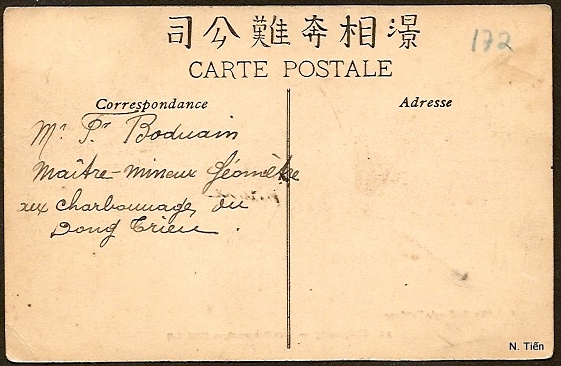 司公難奔相濝
172
CARTE POSTALE
Correspondance
Adresse
Mr Pr Boduain
Maître-mineur Géomètre
aux charbonnages du
Dong Trieu.
N. Tiên